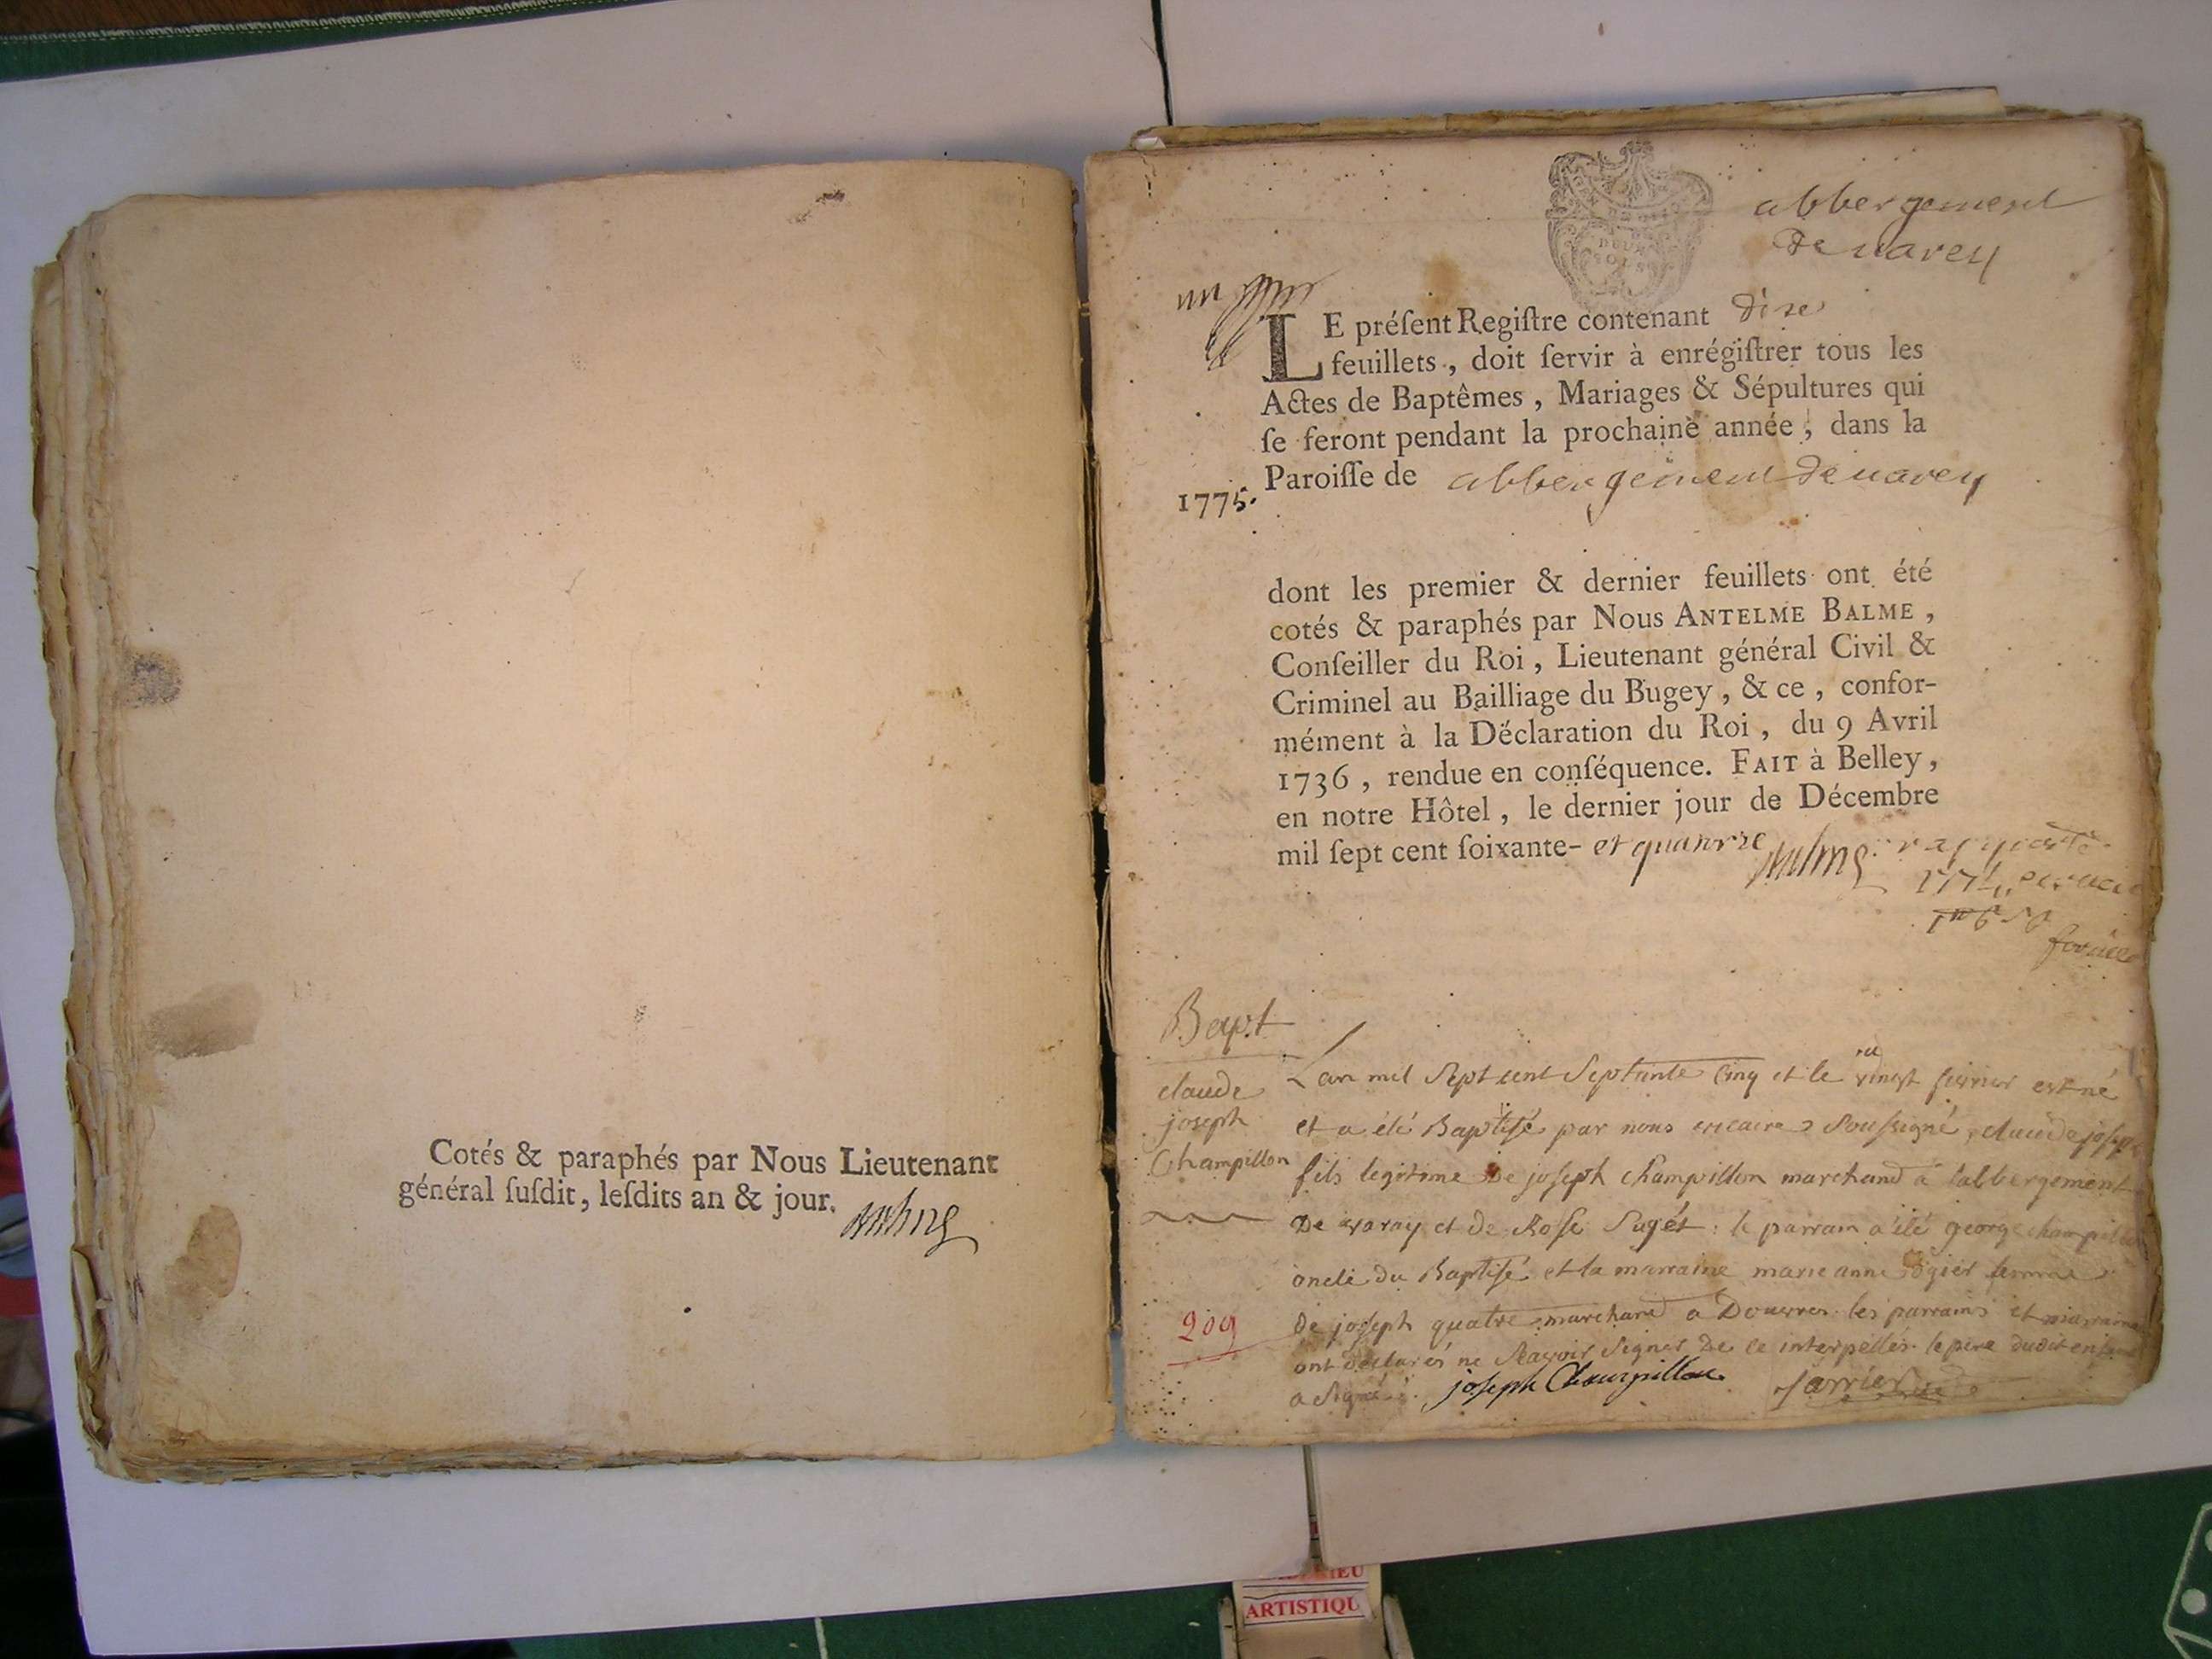 Cotés & paraphés par Nous Lieutenant
général ſuſdit, leſdits an & jour.
abbergement
de uarey
un
LE préſent Regiſtre contenant dixe
feuillets, doit ſervir à enrégiſtrer tous les
Actes de Baptêmes, Mariages & Sépultures qui
ſe feront pendant la prochaine année, dans la
Paroiſſe de abbergement de uarey
1775.
dont les premier & dernier feuillets ont été
cotés & paraphés par Nous ANTELME BALME,
Conſeiller du Roi, Lieutenant général Civil &
Criminel au Bailliage du Bugey, & ce, confor-
mément à la Déclaration du Roi, du 9 Avril
1736, rendue en conſéquence. FAIT à Belley,
en notre Hôtel, le dernier jour de Décembre
mil ſept cent ſoixante- et quatorze
Bapt
claude
joseph
Champillon
L'an mil Sept cent Septante Cinq et le vingt fevrier est né
et a été Baptisé par nous vicaire Soussigné, claude joseph
fils legitime De joseph champillon marchand a l'abbergement
De varay et de Rose Sugét : le parrain a été george champillon
oncle du Baptisé et la marraine marie anne ogier femme
De joseph quatre marchand a Douvres. les parrains et marraine
ont declarés ne Sçavoir Signer De ce interpellés. le pere dudit enfant
a Signé.
joseph Champillon
Jarrier
209
ARTISTIQU